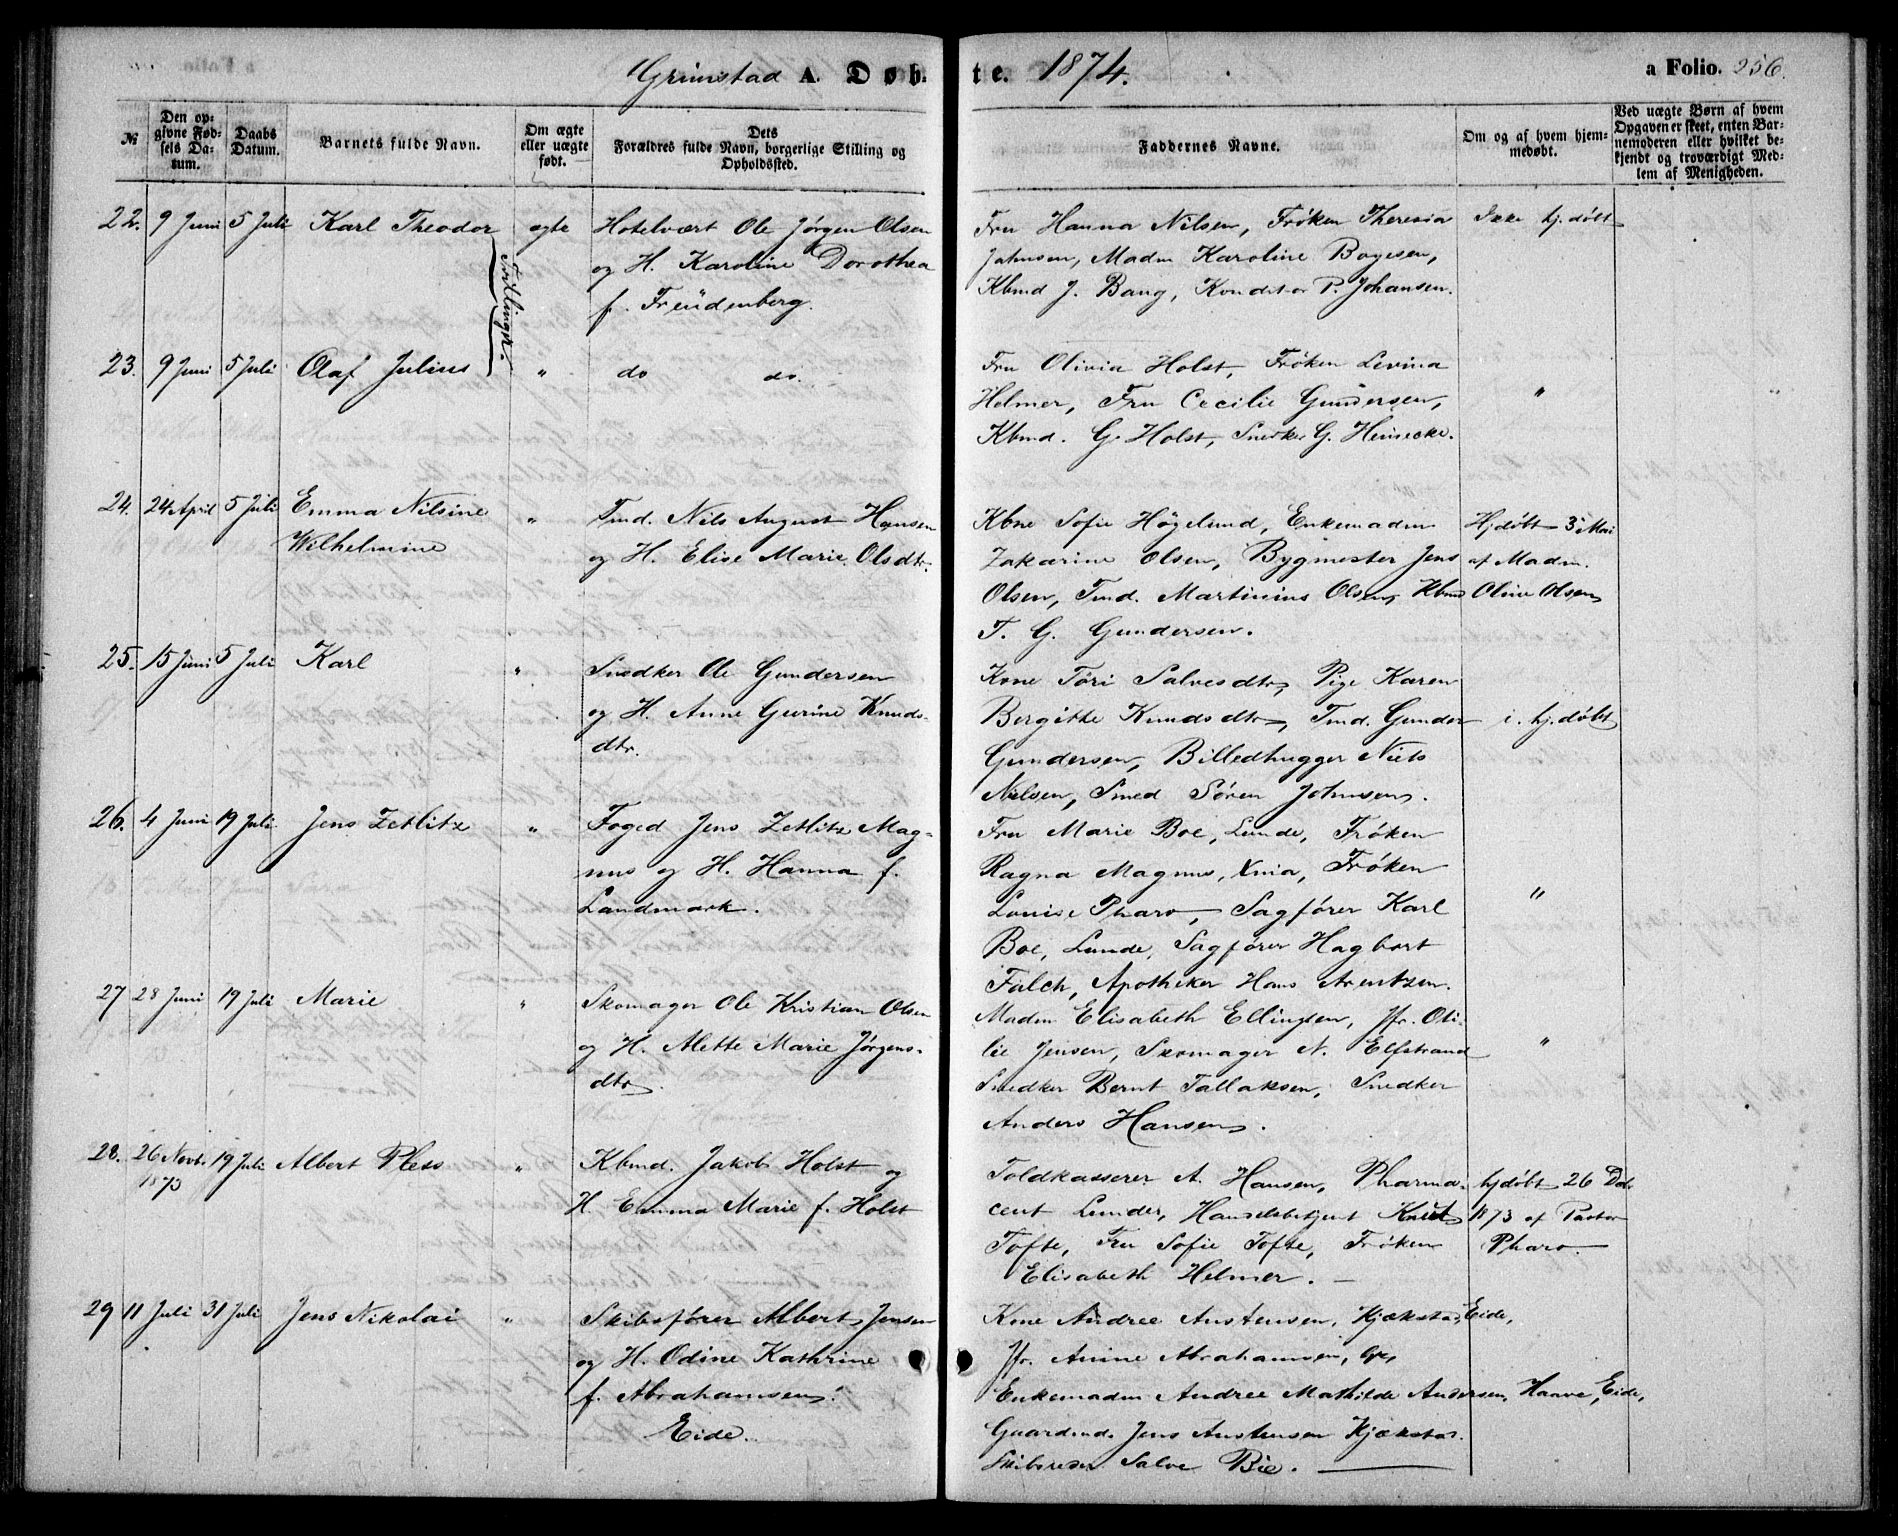 Grimstad A. Døb-
te. 1874.
a Folio. 256.
№
Den op-
givne Fød-
sels Da-
tum.
Daabs
Datum.
Barnets fulde Navn.
Om ægte
eller uægte
født.
Dets
Forældres fulde Navn, borgerlige Stilling og
Opholdssted.
Faddernes Navne.
Om og af hvem hjem-
medøbt.
Ved uægte Børn af hvem
Opgaven er skeet, enten Bar-
nemoderen eller hvilket be-
kjendt og troværdigt Med-
lem af Menigheden.
22. 9 Juni 5 Juli Karl Theodor ægte Hotelvært Ole Jørgen Olsen
og H. Karoline Dorothea
f. Freüdenberg.
Tvillinger.
Fru Hanna Nilsen, Frøken Theresia
Johnsen, Madm Karoline Boyesen,
Kbmd J. Bang, Konditor P. Johansen.
Ikke hj. døbt
23. 9 Juni 5 Juli Olaf Julius " do do.
Fru Olivia Holst, Frøken Levina
Helmer, Fru Cecilie Gundersen,
Kbmd. G. Holst, Snedker G. Heinecke.
"
24. 24 April 5 Juli Emma Nilsine
Wilhelmine
" Tmd. Nils August Hansen
og H. Elise Marie Olsdtr.
Kbne Sofie Høgelund, Enkemadm
Zakarine Olsen, Bygmester Jens
Olsen, Tmd. Martinius Olsen, Kbmd
T. G. Gundersen.
Hjdøbt 3 Mai
af Madm.
Oline Olsen
25. 15 Juni 5 Juli Karl " Snedker Ole Gundersen
og H. Anne Gurine Knuds-
dtr.
Kone Tøri Salvesdtr, Pige Karen
Bergitte Knudsdtr, Tmd. Gunder
Gundersen, Billedhugger Niels
Nilsen, Smed Søren Johnsen.
i. hj. døbt
26. 4 Juni 19 Juli Jens Zetlitz " Foged Jens Zetlitz Mag-
nus og H. Hanna f.
Landmark.
Fru Marie Boe, Lunde, Frøken
Ragna Magnus, Xnia, Frøken
Louise Pharo, Sagfører Karl
Boe, Lunde, Sagfører Hagbart
Falch, Apotheker Hans Arentzen.
"
27 28 Juni 19 Juli Marie " Skomager Ole Kristian Olsen
og H. Alette Marie Jørgens-
dtr.
Madm Elisabeth Ellingsen, Jfr. Oti-
lie Jensen, Skomager N. Elfstrand
Snedker Bernt Tallaksen, Snedker
Anders Hansen.
"
28. 26 Novb. 19 Juli Albert Pless
1873
" Kbmd. Jakob Holst og
H. Emma Marie f. Holst
Toldkasserer A. Hansen, Pharma-
cent Lunder, Handelsbetjent Knut
Tofte, Fru Sofie Tofte, Frøken
Elisabeth Helmer. —
hjdøbt 26 Dcb.
1873 af Pastor
Pharo.
29 11 Juli 31 Juli Jens Nikolai " Skibsfører Albert Jensen
og H. Odine Kathrine
f. Abrahamsen.
Eide.
Kone Andree Austensen, Hjækstad, Eide,
Jfr. Anine Abrahamsen,
Enkemadm Andree Mathilde Andersen, Haave, Eide,
Gaardmd. Jens Austensen Kjækstad.
Skibsreder Salve Bie. —